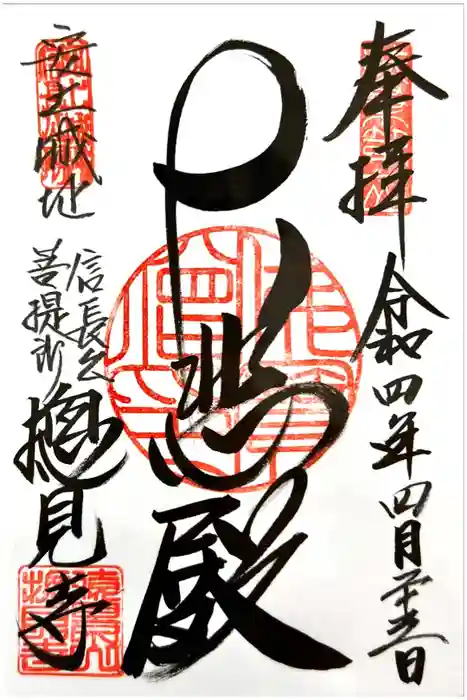 奉拝
令和四年四月二十五日
大悲殿
安土城址
信長公
菩提所
摠見寺